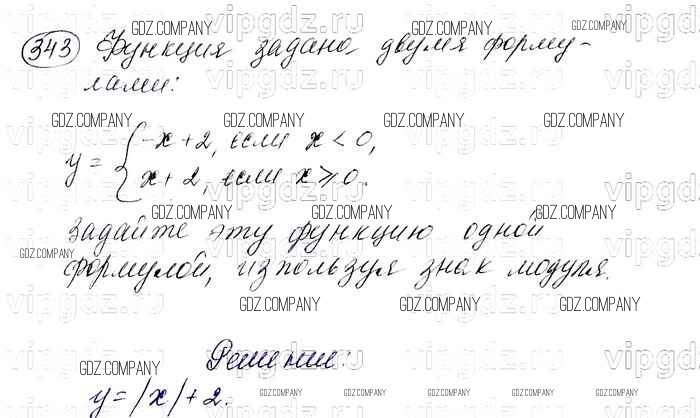 343 Функция задана двумя форму-
лами:
y = { -x + 2, если x < 0,
x + 2, если x ⩾ 0.
Задайте эту функцию одной
формулой, используя знак модуля.
Решение:
y = |x| + 2.